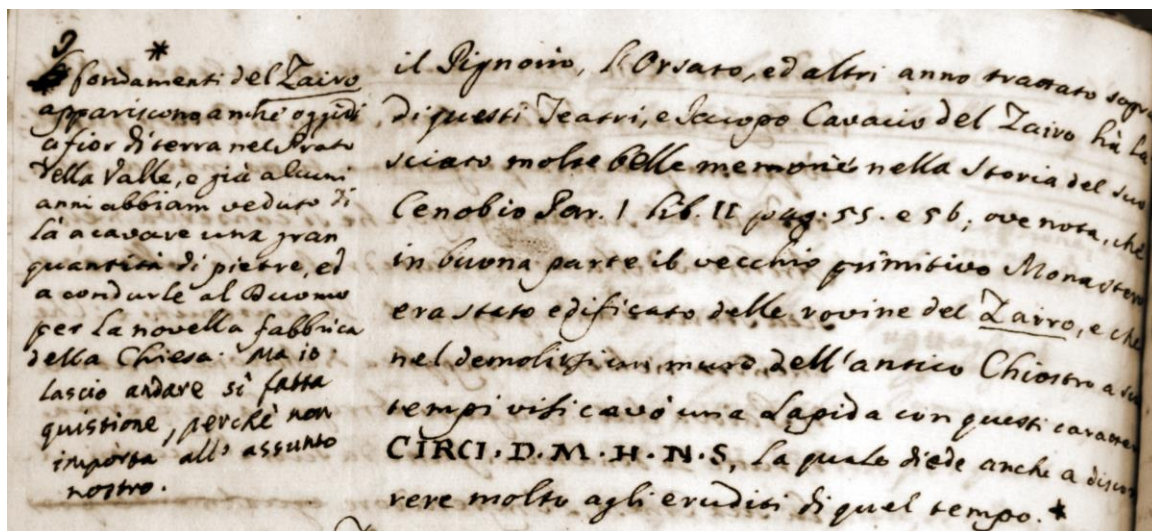 *
I fondamenti del Zairo
appariscono anche oggidì
a fior di terra nel Prato
della Valle, e già alcuni
anni abbiam veduto di
là a cavare una gran
quantità di pietre, ed
a condurle al Duomo
per la novella fabbrica
della Chiesa. Ma io
lascio andare sì fatta
quistione, perchè non
importa all' assunto
nostro.
il Pignorio, l'Orsato, ed altri anno trattato sopra
di questi Teatri, e Jacopo Cavacio del Zairo hà la
sciato molte belle memorie nella Storia del suo
Cenobio Par. I lib. II pag: 55. e 56; ove nota, che
in buona parte il vecchio primitivo Monastero
era stato edificato delle rovine del Zairo, e che
nel demolirsi un muro dell'antico Chiostro a suoi
tempi vi si cavò una Lapida con questi caratteri
CIRCI. D. M. H. N. S, la quale diede anche a discor
rere molto agli eruditi di quel tempo. *